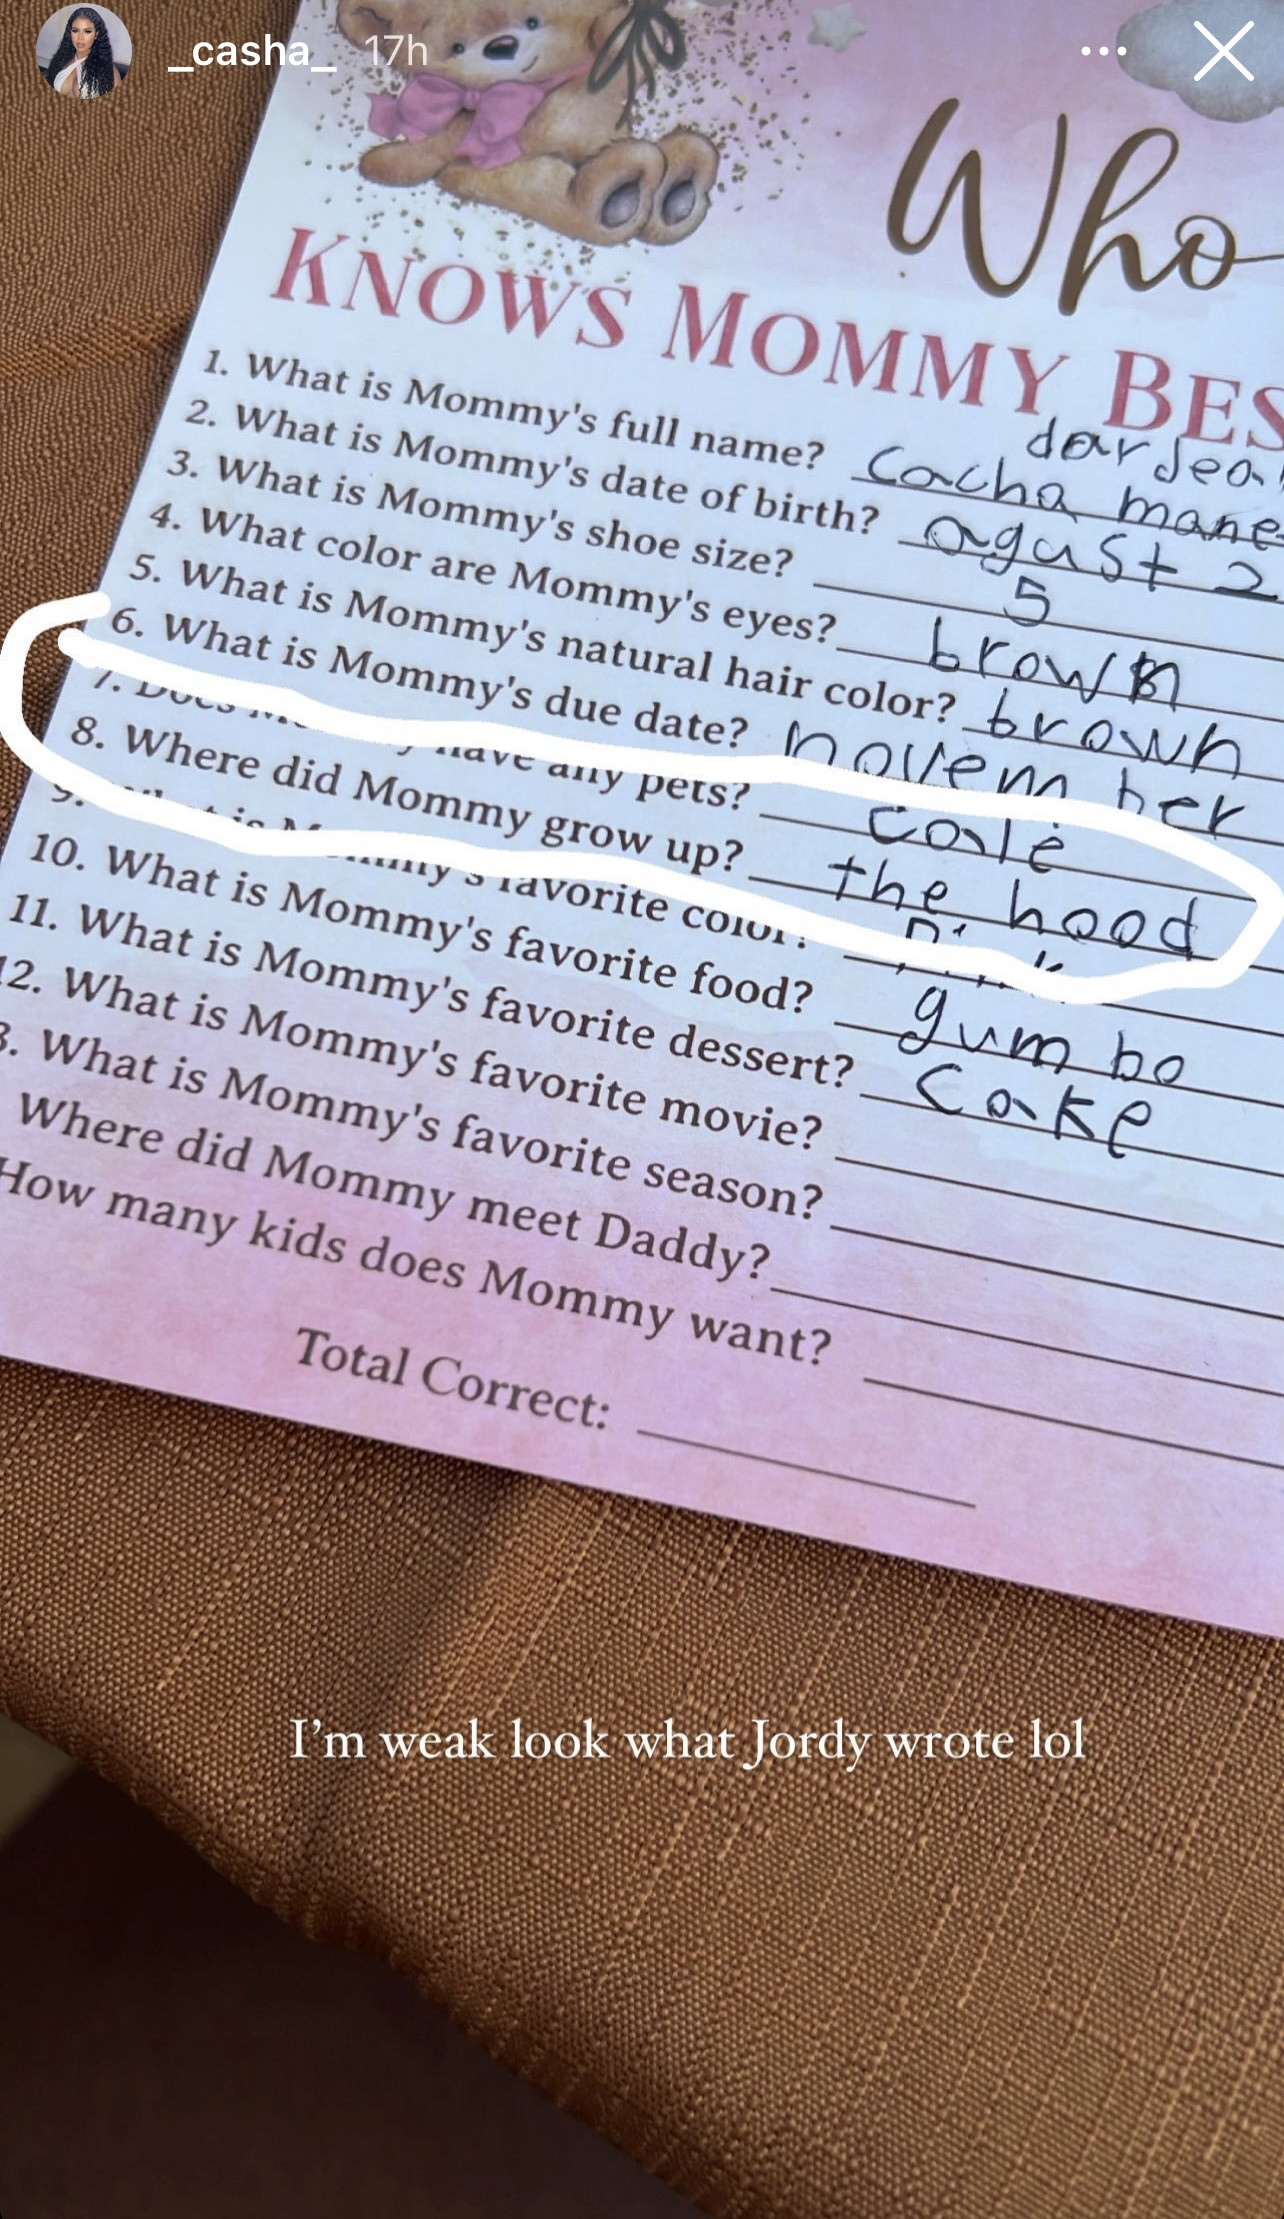 _casha_ 17h
Who
KNOWS MOMMY BES
dar Jea
1. What is Mommy's full name? Cacha mane
2. What is Mommy's date of birth? agust 2
3. What is Mommy's shoe size? 5
4. What color are Mommy's eyes? brown
5. What is Mommy's natural hair color? brown
6. What is Mommy's due date? november
7. Does have any pets? cole
8. Where did Mommy grow up? the hood
9. is Mommy's favorite color?
10. What is Mommy's favorite food? gumbo
11. What is Mommy's favorite dessert? Cake
12. What is Mommy's favorite movie?
3. What is Mommy's favorite season?
Where did Mommy meet Daddy?
How many kids does Mommy want?
Total Correct:
I'm weak look what Jordy wrote lol